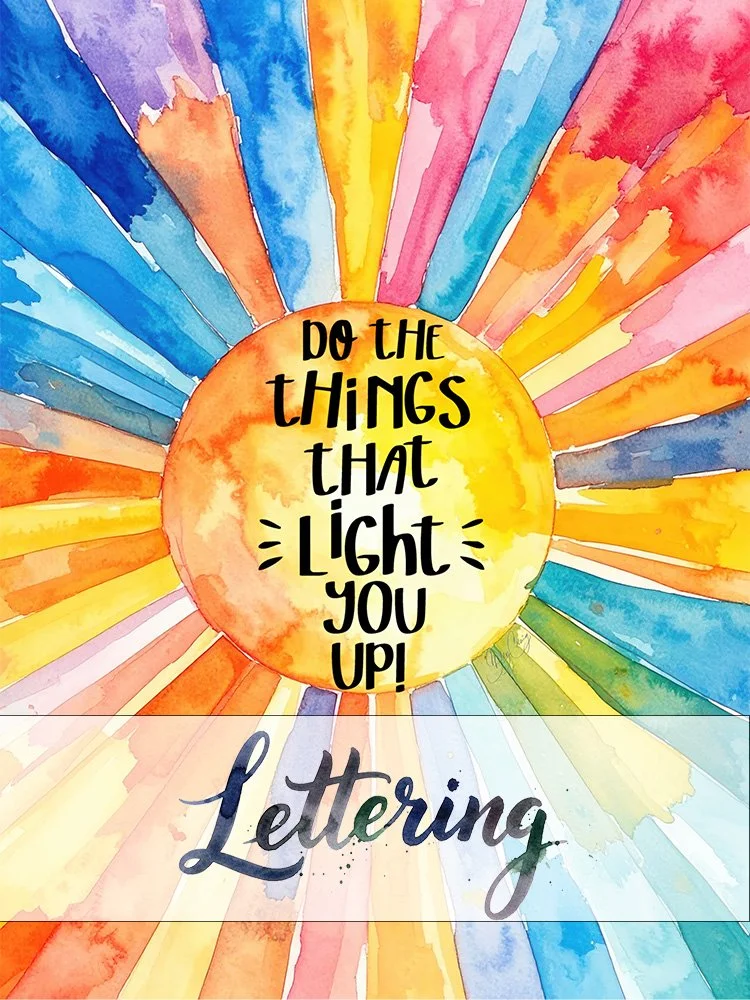 DO THE
tHiNGS
tHAt
LiGht
YOU
UP!
Lettering